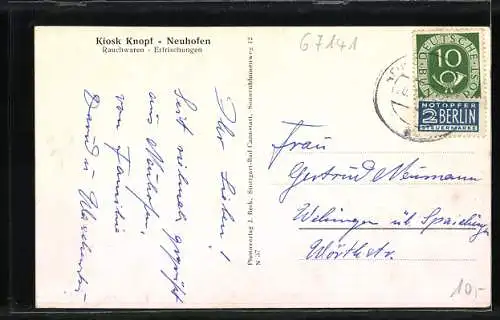 Kiosk Knopf - Neuhofen
Rauchwaren - Erfrischungen
G 7141
Ihr Lieben!
Seid vielmals gegrüßt
aus Neuhofen.
von Familie
David u.
Photoverlag J. Beck, Stuttgart-Bad Cannstatt, Sonnenblumenweg 12
N 57
DEUTSCHE BUNDESPOST
10
NOTOPFER
2 BERLIN
STEUERMARKE
Frau
Gertrud Neumann
Wehingen üb. Spaichingen
Wörthstr.
10,-